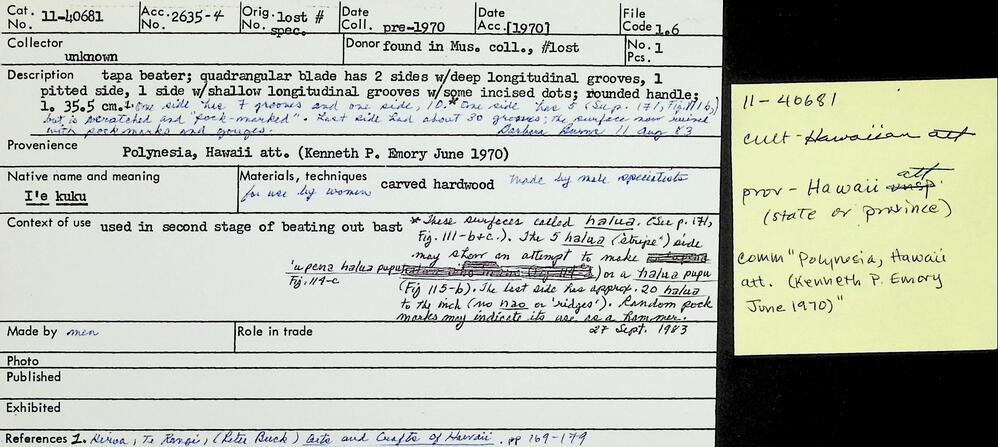 Cat. No. 11-40681
Acc. No. 2635-4
Orig. No. lost # spec.
Date Coll. pre-1970
Date Acc. [1970]
File Code 1.6
Collector unknown
Donor found in Mus. coll., #lost
No. Pcs. 1
Description tapa beater; quadrangular blade has 2 sides w/deep longitudinal grooves, 1
pitted side, 1 side w/shallow longitudinal grooves w/some incised dots; rounded handle;
l. 35.5 cm. 1. One side has 7 grooves and one side, 10.* One side has 5 (See p. 171, Fig. 111 b,)
but is scratched and "pock-marked". Last side had about 30 grooves; the surface now ruined
with pock marks and gouges. Barbara Burns 11 Aug 83
Provenience
Polynesia, Hawaii att. (Kenneth P. Emory June 1970)
Native name and meaning
I'e kuku
Materials, techniques carved hardwood made by male specialists
for use by women
Context of use used in second stage of beating out bast
*These surfaces called halua. (See p. 171,
Fig. 111-b+c.). The 5 halua ('stripe') side
may show an attempt to make
'upena halua pupu
Fig. 114-c
or a halua pupu
(Fig 115-b). The last side has approx. 20 halua
to the inch (no nao or 'ridges'). Random pock
marks may indicate its use as a hammer.
27 Sept. 1983
Made by men
Role in trade
Photo
Published
Exhibited
References 1. Hiroa, Te Rangi, (Peter Buck) Arts and Crafts of Hawaii. pp 169-179
11-40681
cult - Hawaiian att
prov - Hawaii att unsp.
(state or province)
comm "Polynesia, Hawaii
att. (Kenneth P. Emory
June 1970)"